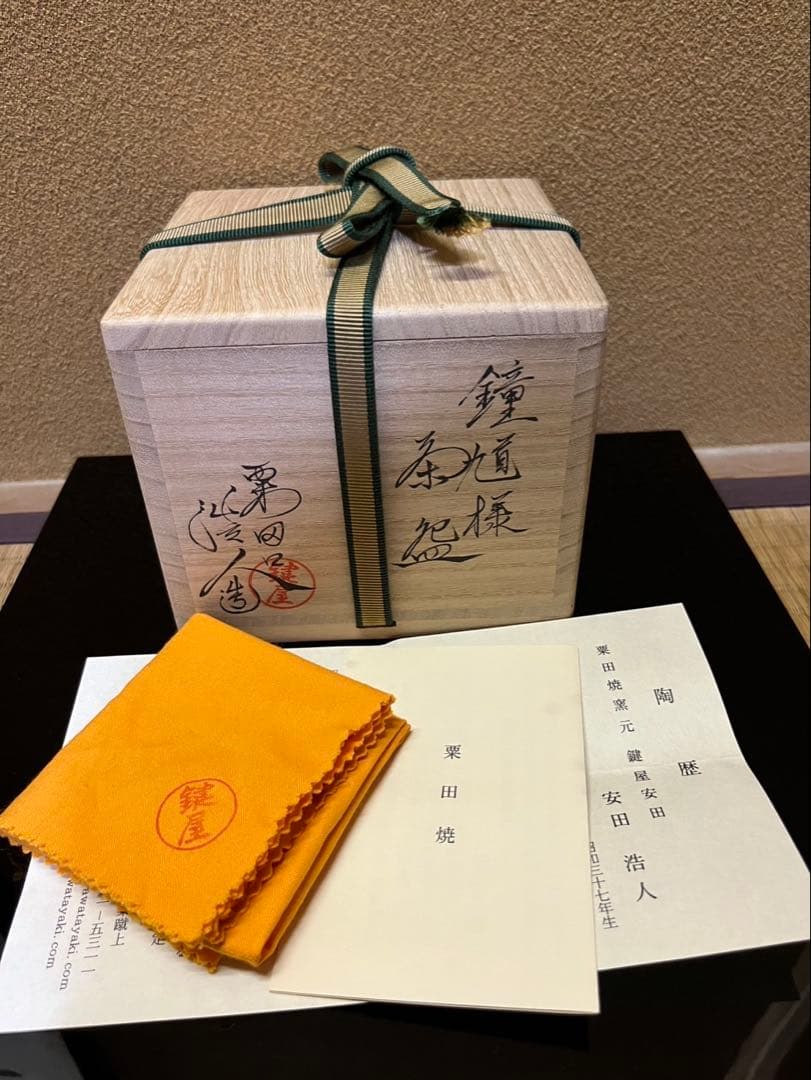 鐘馗様
茶盌
粟田口
浩人造
鍵屋
鍵屋
粟田焼
陶歴
粟田焼窯元 鍵屋安田
安田浩人
昭和三十七年生
蹴上
一五三一一
watayaki.com
awatayaki.com